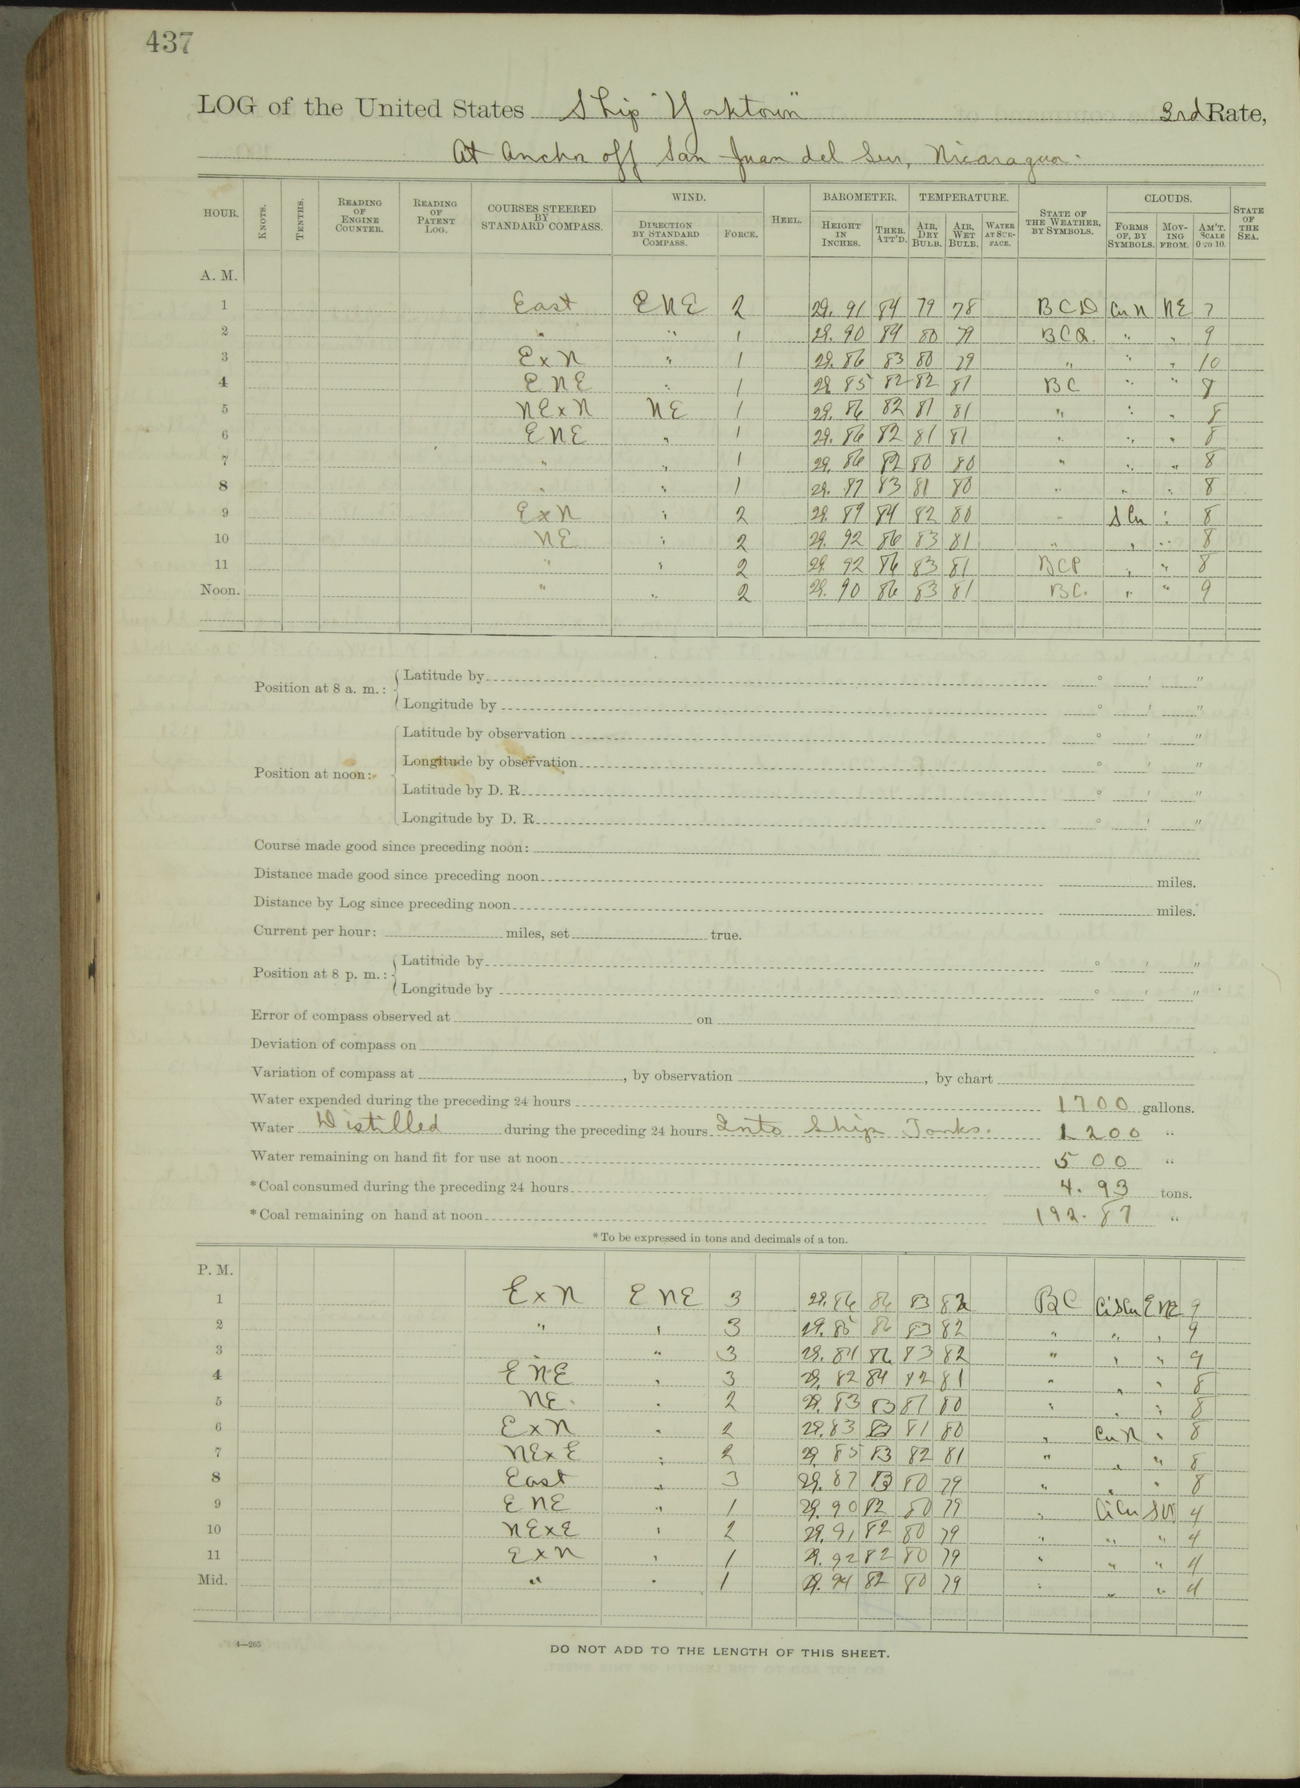 437
LOG of the United States Ship "Yorktown" 3rd Rate,
At Anchor off San Juan del Sur, Nicaragua.
HOUR. KNOTS. TENTHS. READING OF ENGINE COUNTER. READING OF PATENT LOG. COURSES STEERED BY STANDARD COMPASS. WIND. DIRECTION BY STANDARD COMPASS. FORCE. HEEL. BAROMETER. HEIGHT IN INCHES. THER. ATT'D. TEMPERATURE. AIR, DRY BULB. AIR, WET BULB. WATER AT SUR-FACE. STATE OF THE WEATHER, BY SYMBOLS. CLOUDS. FORMS OF, BY SYMBOLS. MOV-ING FROM. AM'T. SCALE 0 TO 10. STATE OF THE SEA.
A. M.
1 East ENE 2 29.91 84 79 78 BCD CuN NE 7
2 " " 1 29.90 84 80 79 BCQ " " 9
3 ExN " 1 29.86 83 80 79 " " " 10
4 ENE " 1 29.85 82 82 81 BC " " 8
5 NExN NE 1 29.86 82 81 81 " " " 8
6 ENE " 1 29.86 82 81 81 " " " 8
7 " " 1 29.86 82 80 80 " " " 8
8 " " 1 29.87 83 81 80 " " " 8
9 ExN " 2 29.89 84 82 80 " SCu " 8
10 NE " 2 29.92 86 83 81 " " " 8
11 " " 2 29.92 86 83 81 BCP " " 8
Noon. " " 2 29.90 86 83 81 BC. " " 9
Position at 8 a. m.: Latitude by ° ' "
Longitude by ° ' "
Position at noon: Latitude by observation ° ' "
Longitude by observation ° ' "
Latitude by D. R. ° ' "
Longitude by D. R. ° ' "
Course made good since preceding noon:
Distance made good since preceding noon miles.
Distance by Log since preceding noon miles.
Current per hour: miles, set true.
Position at 8 p. m.: Latitude by ° ' "
Longitude by ° ' "
Error of compass observed at on
Deviation of compass on
Variation of compass at , by observation , by chart
Water expended during the preceding 24 hours 1700 gallons.
Water Distilled during the preceding 24 hours Into Ships Tanks. 1200 "
Water remaining on hand fit for use at noon 500 "
*Coal consumed during the preceding 24 hours 4.93 tons.
*Coal remaining on hand at noon 192.87 "
*To be expressed in tons and decimals of a ton.
P. M.
1 ExN ENE 3 29.86 86 83 82 BC CiSCu ENE 9
2 " " 3 29.85 86 83 82 " " " 9
3 " " 3 29.81 86 83 82 " " " 9
4 ENE " 3 29.82 84 82 81 " " " 8
5 NE. " 2 29.83 83 81 80 " " " 8
6 ExN " 2 29.83 83 81 80 " CuN " 8
7 NExE " 2 29.85 83 82 81 " " " 8
8 East " 3 29.87 83 80 79 " " " 8
9 ENE " 1 29.90 82 80 79 " CiCu SW 4
10 NExE " 2 29.91 82 80 79 " " " 4
11 ExN " 1 29.92 82 80 79 " " " 4
Mid. " " 1 29.94 82 80 79 " " " 4
4—265
DO NOT ADD TO THE LENGTH OF THIS SHEET.